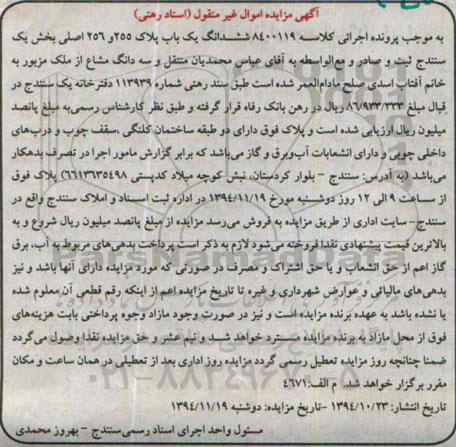 آگهی مزایده اموال غیر منقول (اسناد رهنی)
به موجب پرونده اجرائی کلاسه ۸۴۰۰۱۱۹ ششدانگ یک باب پلاک ۲۵۵و ۲۵۶ اصلی بخش یک
سنندج ثبت و صادر و مع‌الواسطه به آقای عباس محمدیان منتقل و سه دانگ مشاع از ملک مزبور به
خانم آفتاب اسدی صلح مادام‌العمر شده است طبق سند رهنی شماره ۱۱۳۹۳۹ دفترخانه یک سنندج در
قبال مبلغ ۸۶/۹۳۳/۳۳۳ ریال در رهن بانک رفاه قرار گرفته و طبق نظر کارشناس رسمی‌به مبلغ پانصد
میلیون ریال ارزیابی شده است و پلاک فوق دارای دو طبقه ساختمان کلنگی ،سقف چوب و درب‌های
داخلی چوبی و دارای انشعابات آب‌وبرق و گاز می‌باشد که برابر گزارش مامور اجرا در تصرف بدهکار
می‌باشد (به آدرس: سنندج - بلوار کردستان، نبش کوچه میلاد کدپستی ۶۶۱۳۶۳۵۴۹۸) پلاک فوق
از ساعت ۹ الی ۱۲ روز دوشنبه مورخ ۱۳۹۴/۱۱/۱۹ در اداره ثبت اسناد و املاک سنندج واقع در
سنندج- سایت اداری از طریق مزایده به فروش می‌رسد مزایده از مبلغ پانصد میلیون ریال شروع و به
بالاترین قیمت پیشنهادی نقدا فروخته می‌شود لازم به ذکر است پرداخت بدهی‌های مربوط به آب، برق
گاز اعم از حق انشعاب و یا حق اشتراک و مصرف در صورتی که مورد مزایده دارای آنها باشد و نیز
بدهی‌های مالیاتی و عوارض شهرداری و غیره تا تاریخ مزایده اعم از اینکه رقم قطعی آن معلوم شده
یا نشده باشد به عهده برنده مزایده است و نیز در صورت وجود مازاد وجوه پرداختی بابت هزینه‌های
فوق از محل مازاد به برنده مزایده مسترد خواهد شد و نیم عشر و حق مزایده نقدا وصول می‌گردد
ضمنا چنانچه روز مزایده تعطیل رسمی گردد مزایده روز اداری بعد از تعطیلی در همان ساعت و مکان
مقرر برگزار خواهد شد. م الف: ۴۶۷۱
تاریخ انتشار: ۱۳۹۴/۱۰/۲۳ -تاریخ مزایده: دوشنبه ۱۳۹۴/۱۱/۱۹
مسئول واحد اجرای اسناد رسمی‌سنندج - بهروز محمدی
ParsNamadData